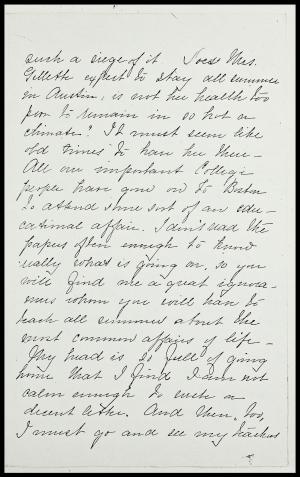 such a siege of it Does Mrs.
Gillette expect to stay all summer
in Austin, is not her health too
poor to remain in so hot a
climate? It must seem like
old times to have her there -
All our important College
people have gone on to Boston
to attend some sort of an edu-
cational affair. I don't read the
papers often enough to know
really what is going on, so you
will find me a great ignora-
mus whom you will have to
teach all summer about the
most common affairs of life -
My head is so full of going
home that I find I am not
calm enough to write a
decent letter. And then, too,
I must go and see my teachers